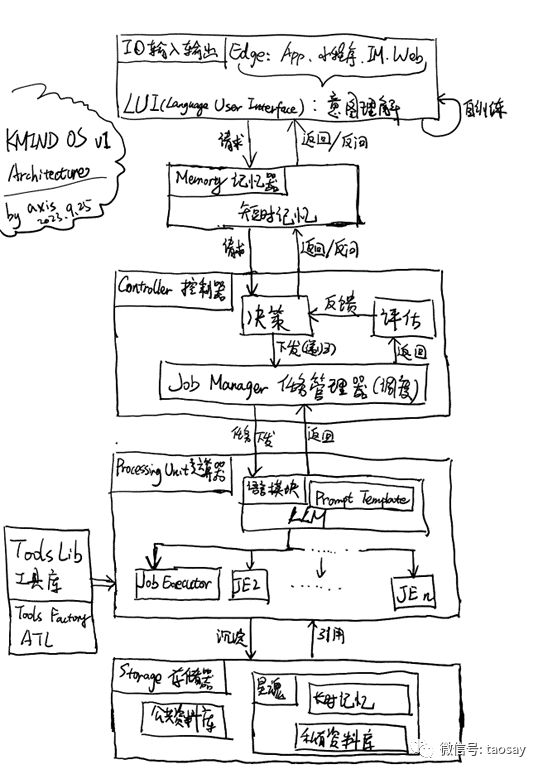 IO输入输出 Edge: App、小程序、IM、Web
LUI(Language User Interface): 意图理解
自训练
KMIND OS v1
Architecture
by axis
2023.9.25
请求
返回/反问
Memory 记忆器
短时记忆
请求
返回/反问
Controller 控制器
决策
反馈
评估
下发(递归)
返回
Job Manager 任务管理器(调度)
任务下发
返回
Processing Unit 运算器
语言模块
Prompt Template
LLM
Job Executor
JE2
......
JEn
Tools Lib
工具库
Tools Factory
ATL
沉淀
引用
Storage 存储器
公共资料库
灵魂
长时记忆
私有资料库
微信号: taosay